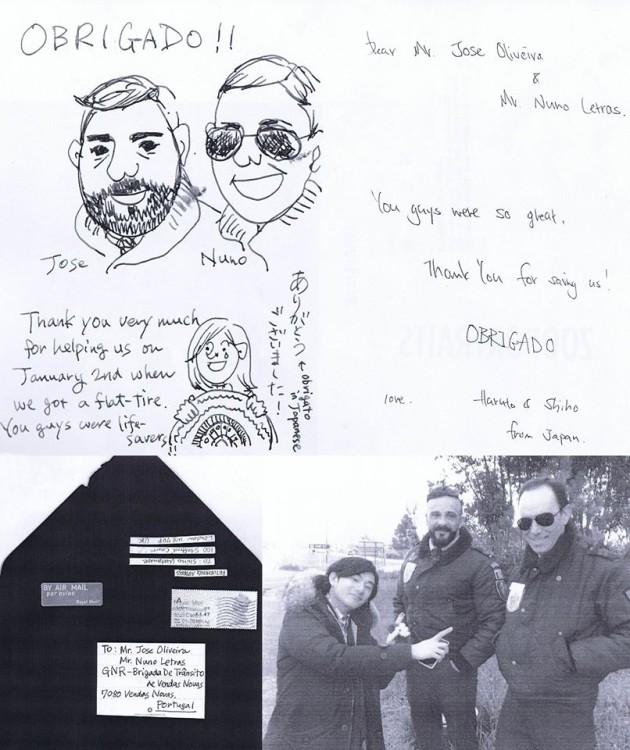 OBRIGADO!!
Jose
Nuno
Thank you very much
for helping us on
January 2nd when
we got a flat-tire.
You guys were life-
savers!!
ありがとう ← obrigato
in Japanese
Dear Mr. Jose Oliveira
&
Mr. Nuno Letras.
You guys were so great.
Thank You for saving us!
OBRIGADO
love.
Haruto & Shiho
from Japan.
London UK
BY AIR MAIL
par avion
Royal Mail
To: Mr. Jose Oliveira
Mr. Nuno Letras
GNR-Brigada De Trânsito
de Vendas Novas
7080 Vendas Novas.
Portugal